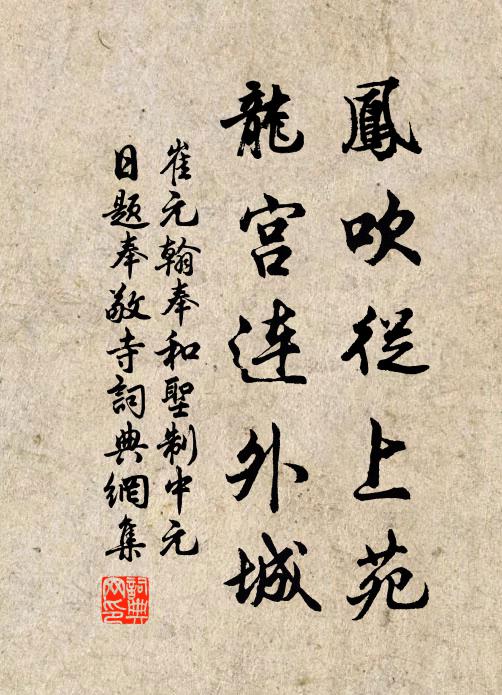 鳳吹從上苑
龍宮連外城
崔元翰奉和聖制中元
日題奉敬寺詞典網集
詞典
网印